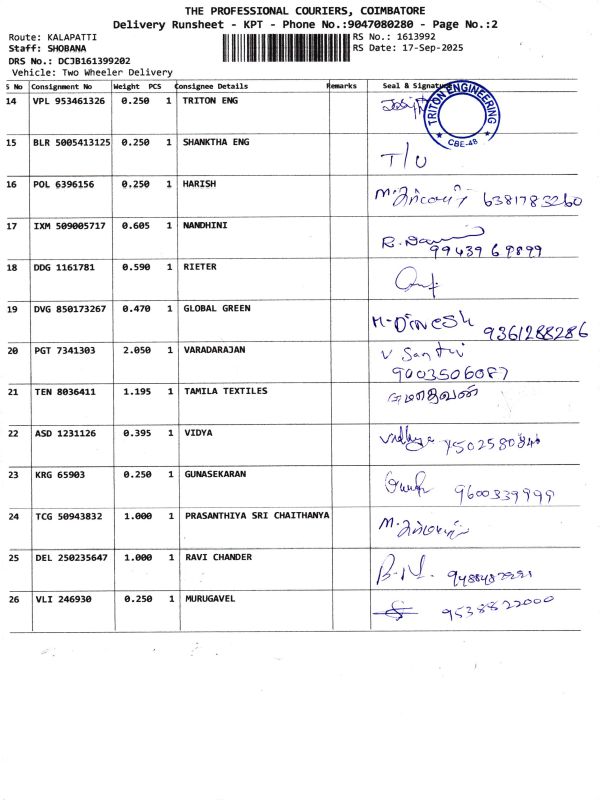 THE PROFESSIONAL COURIERS, COIMBATORE
Delivery Runsheet - KPT - Phone No.:9047080280 - Page No.:2
Route: KALAPATTI RS No.: 1613992
Staff: SHOBANA RS Date: 17-Sep-2025
DRS No.: DCJB161399202
Vehicle: Two Wheeler Delivery
S No Consignment No Weight PCS Consignee Details Remarks Seal & Signature
14 VPL 953461326 0.250 1 TRITON ENG
TRITON ENGINEERING
CBE-48
15 BLR 5005413125 0.250 1 SHANKTHA ENG T/U
16 POL 6396156 0.250 1 HARISH 6381783260
17 IXM 509005717 0.605 1 NANDHINI
9943969899
18 DDG 1161781 0.590 1 RIETER
19 DVG 850173267 0.470 1 GLOBAL GREEN M-Dinesh 9361288286
20 PGT 7341303 2.050 1 VARADARAJAN V Santhi
9003506087
21 TEN 8036411 1.195 1 TAMILA TEXTILES
22 ASD 1231126 0.395 1 VIDYA Vidhya
23 KRG 65903 0.250 1 GUNASEKARAN 9600339999
24 TCG 50943832 1.000 1 PRASANTHIYA SRI CHAITHANYA
25 DEL 250235647 1.000 1 RAVI CHANDER
26 VLI 246930 0.250 1 MURUGAVEL 9538822000